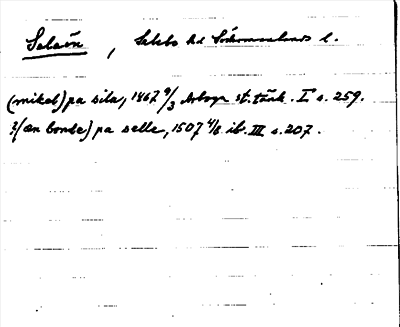 Selaön , Selebo hd Södermanlands l.
(mikel) pa sila, 1467 9/3 Arboga st. tänk. I s. 259.
?(æn bonde) pa selle, 1507 4/6 ib. III s. 207.